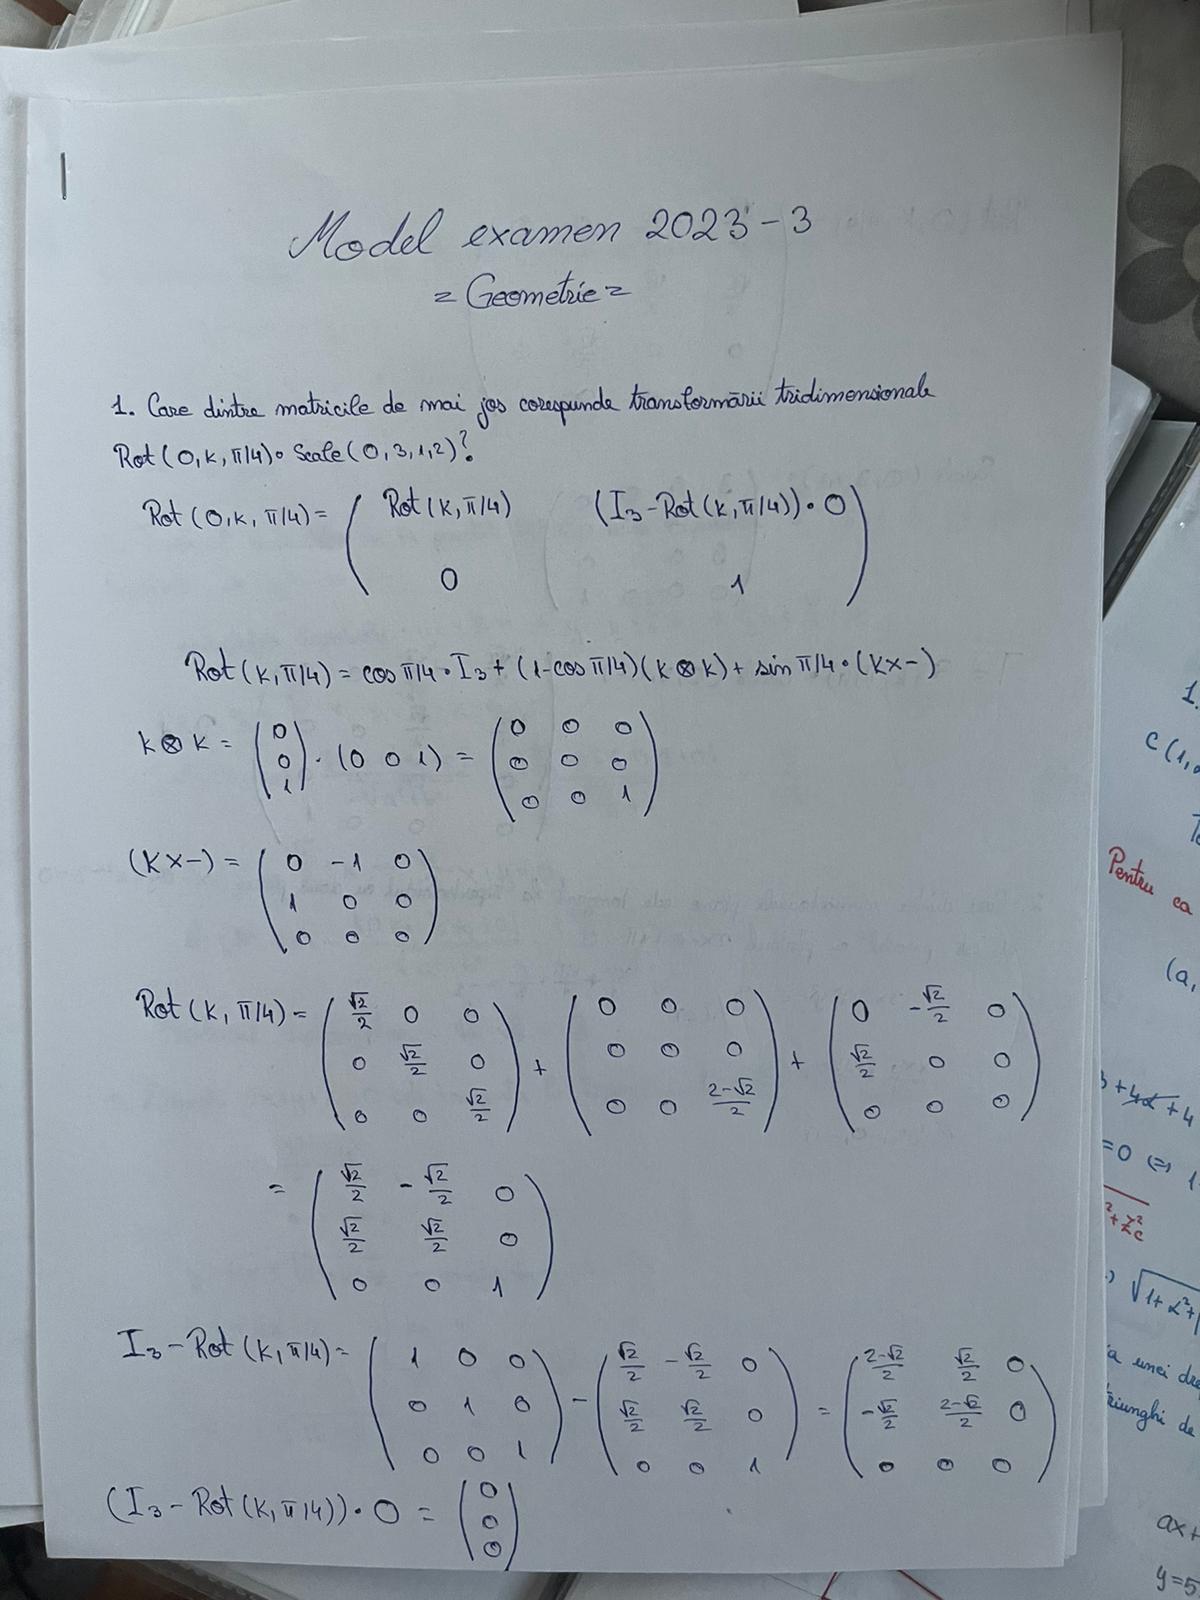 Model examen 2023-3
= Geometrie =
1. Care dintre matricile de mai jos corespunde transformării tridimensionale
Rot(O,k,π/4)∘Scale(O,3,1,2)?
Rot(O,k,π/4) = ( Rot(k,π/4) (I₃-Rot(k,π/4))·O
0 1 )
Rot(k,π/4) = cosπ/4·I₃ + (1-cosπ/4)(k⊗k) + sinπ/4·(k×-)
k⊗k = (0 0 1)ᵀ · (0 0 1) = (0 0 0
0 0 0
0 0 1)
(k×-) = (0 -1 0
1 0 0
0 0 0)
Rot(k,π/4) = (√2/2 0 0 + (0 0 0 + (0 -√2/2 0
0 √2/2 0 0 0 0 √2/2 0 0
0 0 √2/2) 0 0 (2-√2)/2) 0 0 0)
= (√2/2 -√2/2 0
√2/2 √2/2 0
0 0 1)
I₃-Rot(k,π/4) = (1 0 0 - (√2/2 -√2/2 0 = ((2-√2)/2 √2/2 0
0 1 0 √2/2 √2/2 0 -√2/2 (2-√2)/2 0
0 0 1) 0 0 1) 0 0 0)
(I₃-Rot(k,π/4))·O = (0
0
0)
1.
C(1,
Pentru ca
(a,
+4α+4
=0 (=)
²+z²c
√1+α²+
a unei dre
triunghi de
ax+
y=5